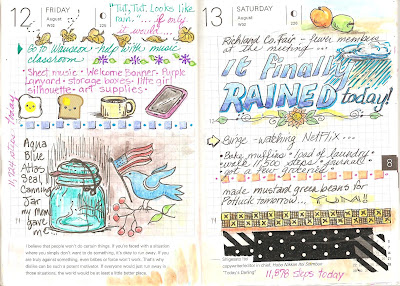 12 FRIDAY
August
W32
225
"Tut, Tut, Looks like
rain."... if only
it would
Go to Wauseon - help with music
classroom
Sheet music • Welcome Banner • Purple
lanyard • storage boxes • little girl
silhouette • art supplies •
Aqua
Blue
Atlas
Seal
Canning
Jar
my mom
gave
me
I believe that people won't do certain things. If you're faced with a situation
where you simply don't want to do something, it's okay to run away. If you
are truly against something, even bribes or force won't work. That's why
13 SATURDAY
August
W32
226
Richland Co. Fair - fewer members
at the meeting...
it Finally
RAINED today!
Binge-watching NetFlix...
Bake muffins • load of laundry •
walk 11,500 steps • journal •
got a few groceries
8
made mustard green beans for
Potluck tomorrow... YUM!!
11
11,878 steps today